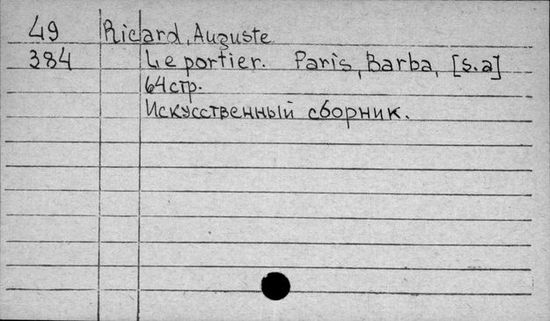 49 Ricard, Auguste
384 Le portier. Paris, Barba, [s.a]
64 стр.
Искусственный сборник.